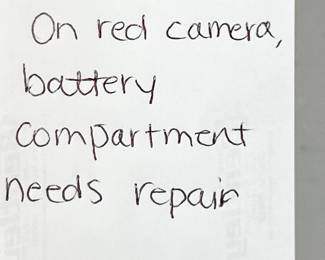 On red camera,
battery
compartment
needs repair